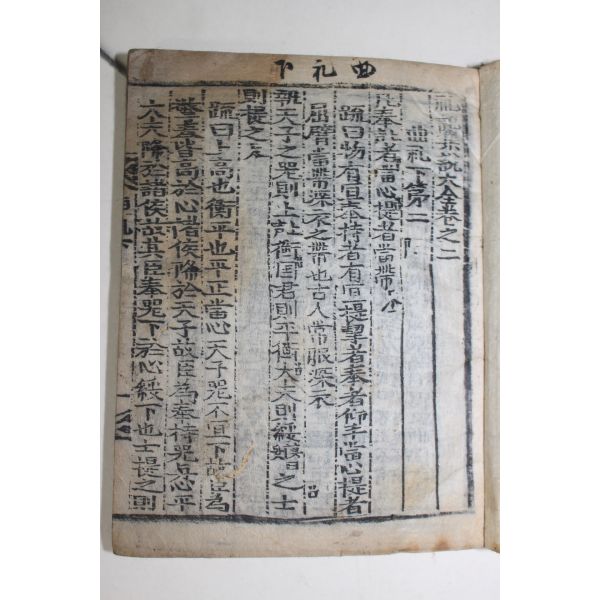 曲礼下
禮記集說大全卷之二
曲礼下第二
凡奉者當心提者當帶
疏曰物有宜奉持者有宜提挈者奉者仰手當心提者
屈臂當帶深衣之帶也古人常服深衣
執天子之器則上衡国君則平衡大夫則綏之士
則提之
疏曰上高也衡平也平正當心天子器不宜下故臣為
擎奉皆高於心諸侯降於天子故臣為奉持器与心平
大夫降於諸侯故其臣奉器下於心綏下也士提之則